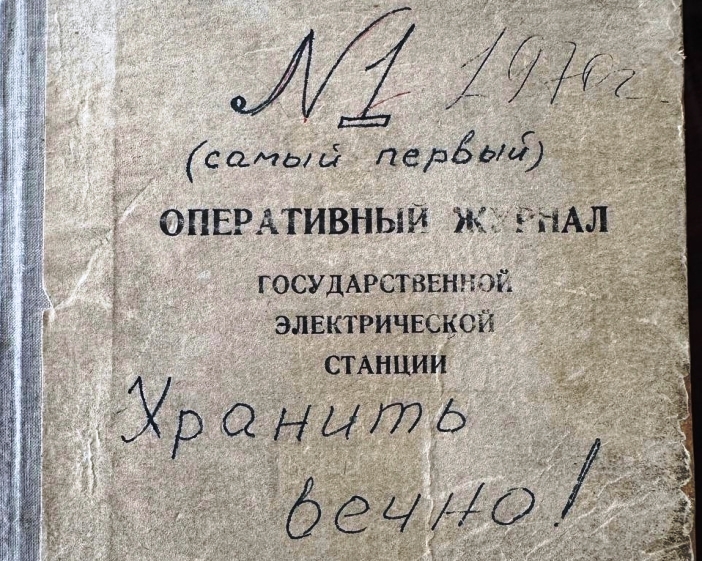 №1 1970г.
(самый первый)
ОПЕРАТИВНЫЙ ЖУРНАЛ
ГОСУДАРСТВЕННОЙ
ЭЛЕКТРИЧЕСКОЙ
СТАНЦИИ
Хранить
вечно!